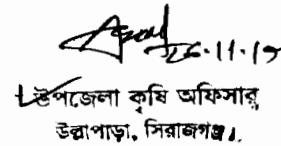 26.11.19
উপজেলা কৃষি অফিসার
উল্লাপাড়া, সিরাজগঞ্জ।